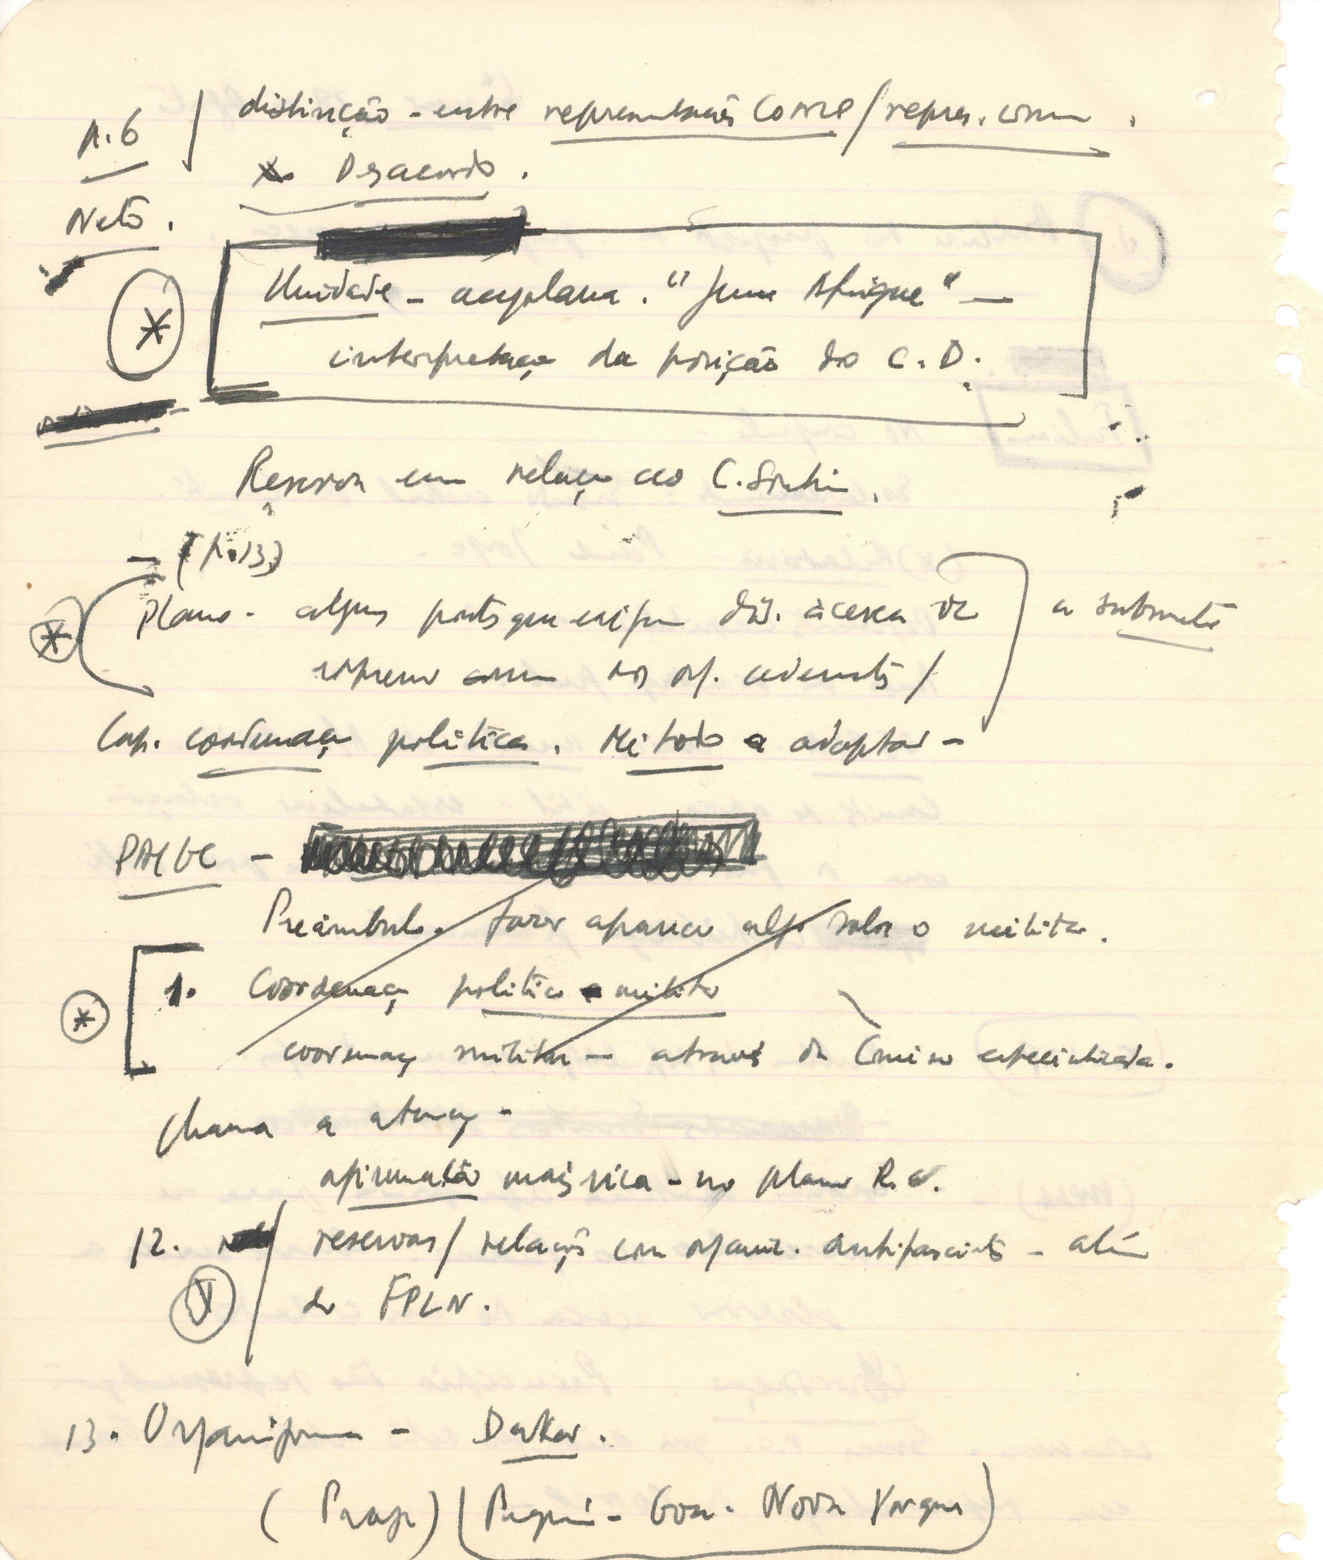 p. 6 / distinção - entre representações CONCP / repres. comum.
Desacordo.
Neto.
Unidade - "Jeune Afrique" -
interpretação da posição do C.D.
Reserva em relação ao C.
- (p. 13)
Plano - alguns pontos que exigem dis. acerca de
a submeter
comum nos org.
Cap. coordenação política. Método a adoptar -
PAIGC -
Preâmbulo. fazer aparecer algo sobre o militar.
1. Coordenação política e militar
coordenação militar - através da Comissão especializada.
chama a atenção -
afirmação mais rica - no plano
12. reservas / relações com organiz. antifascistas - além
da FPLN.
13. Organigrama - Dakar.
(Praga) (Pequim - Goa - Nova Yorque)